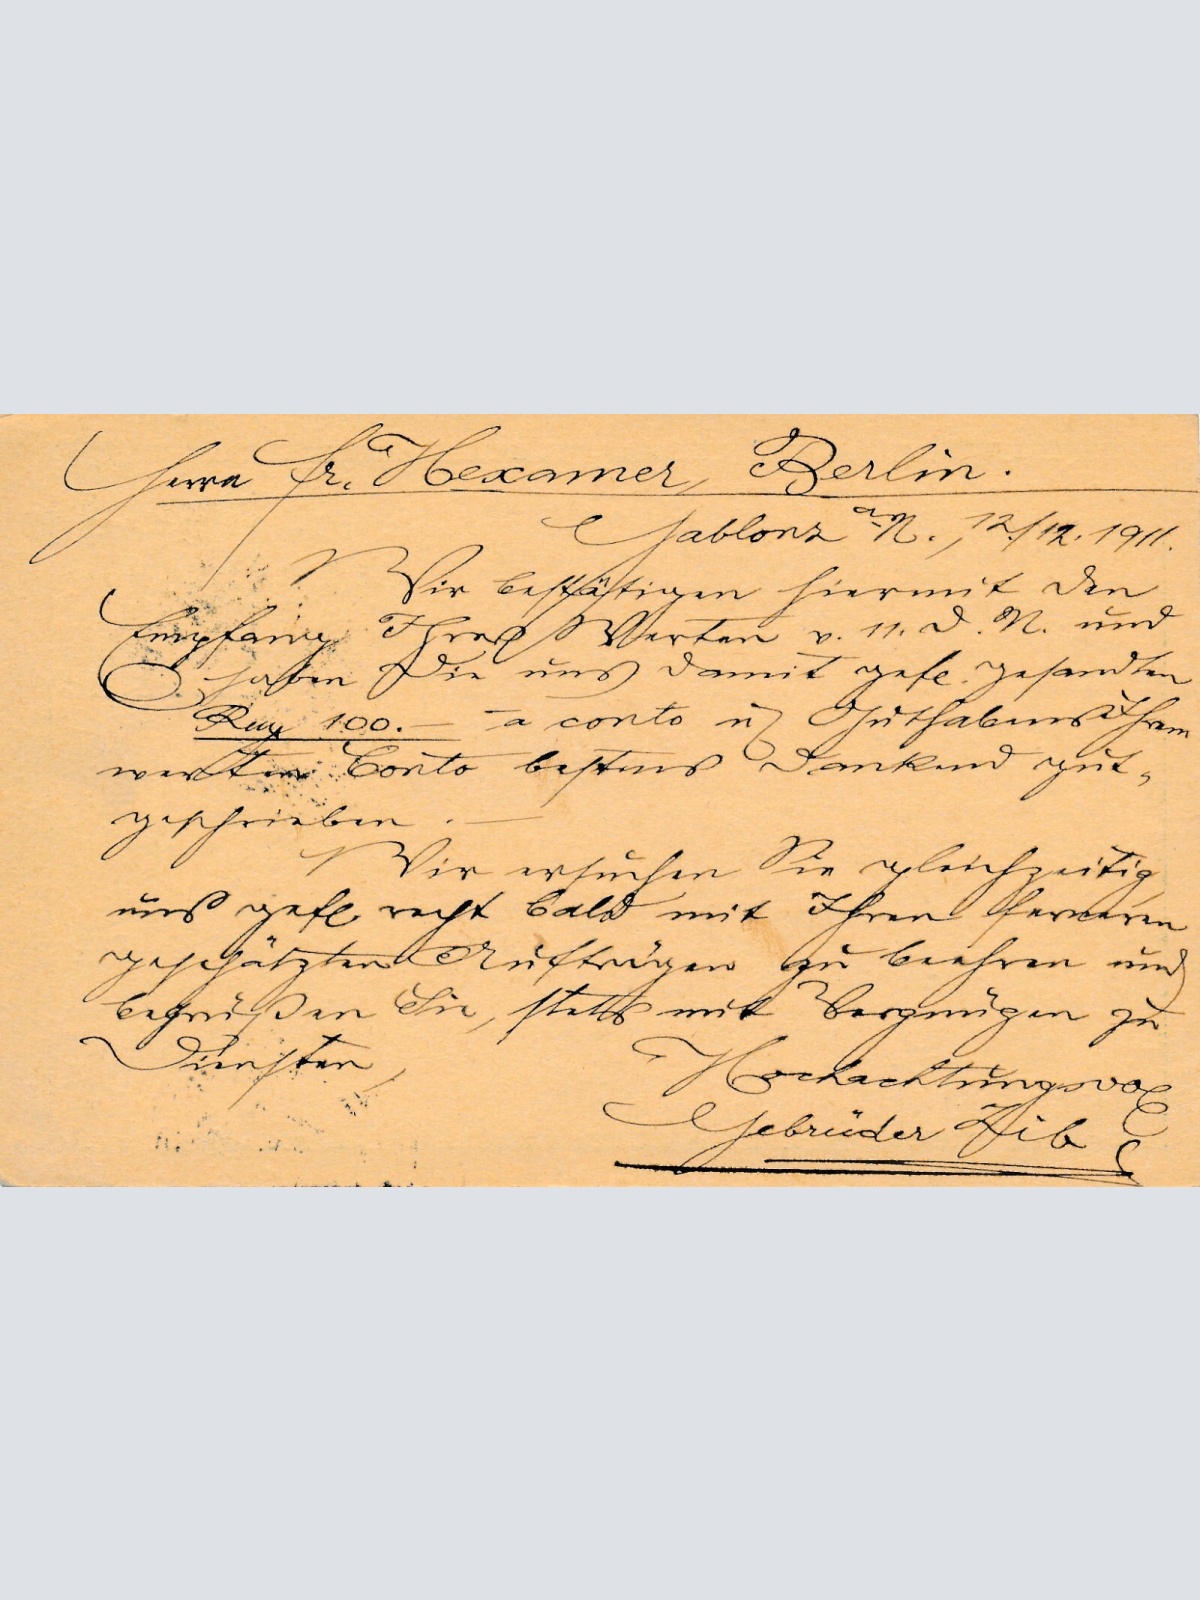 Herrn Fr. Hexamer, Berlin.
Gablonz a/N., 12/12. 1911.
Wir bestätigen hiermit den
Empfang Ihres Werten v. 11. d. M. und
haben die uns damit gefl. gesandten
100.— a conto u/ Guthabens Ihrem
werten Conto bestens dankend gut-
geschrieben. —
Wir ersuchen Sie gleichzeitig
uns gefl. recht bald mit Ihren ferneren
geschätzten Aufträgen zu beehren und
begrüßen Sie, stets mit Vergnügen zu
Diensten,
Hochachtungsvoll
Gebrüder